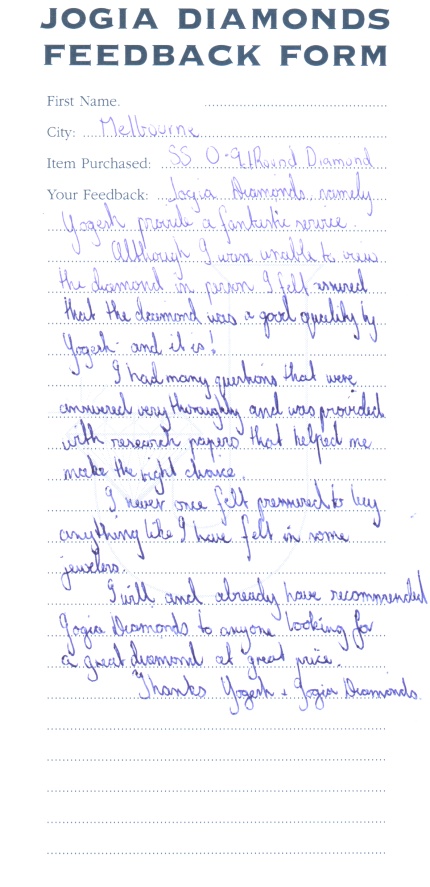 JOGIA DIAMONDS
FEEDBACK FORM
First Name.
City: Melbourne
Item Purchased: SS 0.91 Round Diamond
Your Feedback: Jogia Diamonds, namely
Yogesh provide a fantastic service.
Although I was unable to view
the diamond in person I felt assured
that the diamond was a good quality by
Yogesh - and it is!
I had many questions that were
answered very thoroughly and was provided
with research papers that helped me
make the right choice.
I never once felt pressured to buy
anything like I have felt in some
jewelers.
I will and already have recommended
Jogia Diamonds to anyone looking for
a great diamond at great price.
Thanks Yogesh + Jogia Diamonds.